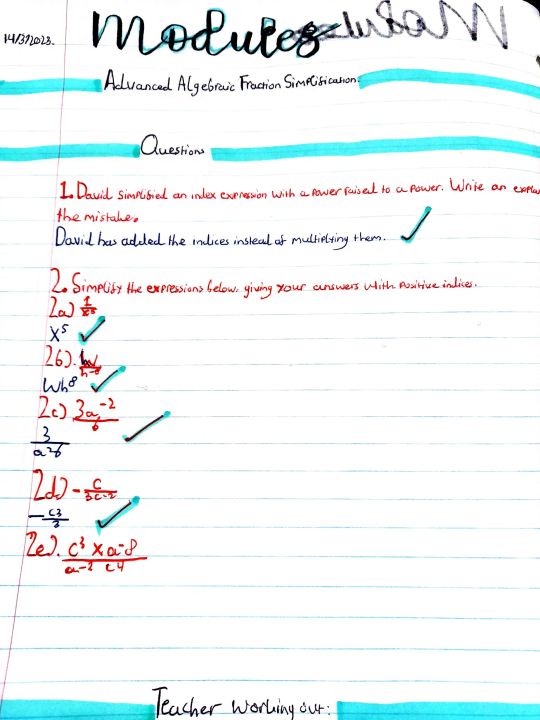 14/3/2023.
Modules
Advanced Algebraic Fraction Simplification.
Questions
1. David simplified an index expression with a power raised to a power. Write an
the mistake.
David has added the indices instead of multiplying them.
2. Simplify the expressions below, giving your answers with positive indices.
2a) 1/x⁻⁵
x⁵
2b). w/h⁻⁸
wh⁸
2c) 3a⁻²/b
3/a²b
2d) - c/3c⁻²
- c³/3
2e). c³ x a⁻⁸
a⁻² c⁴
Teacher working out: